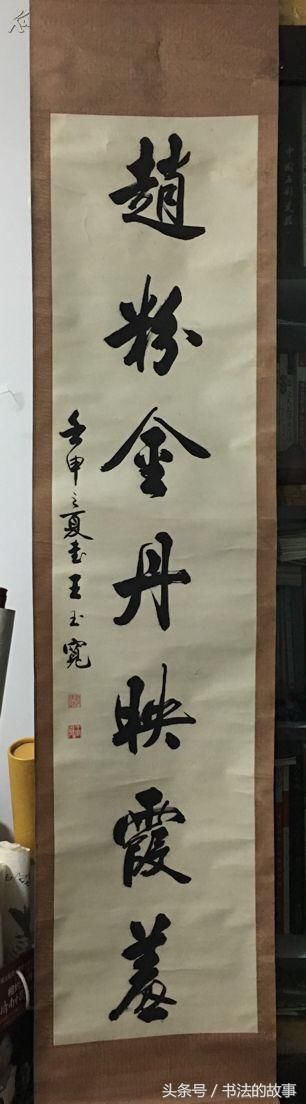 趙粉金丹映霞羞
壬申之夏書王玉寬
头条号／书法的故事